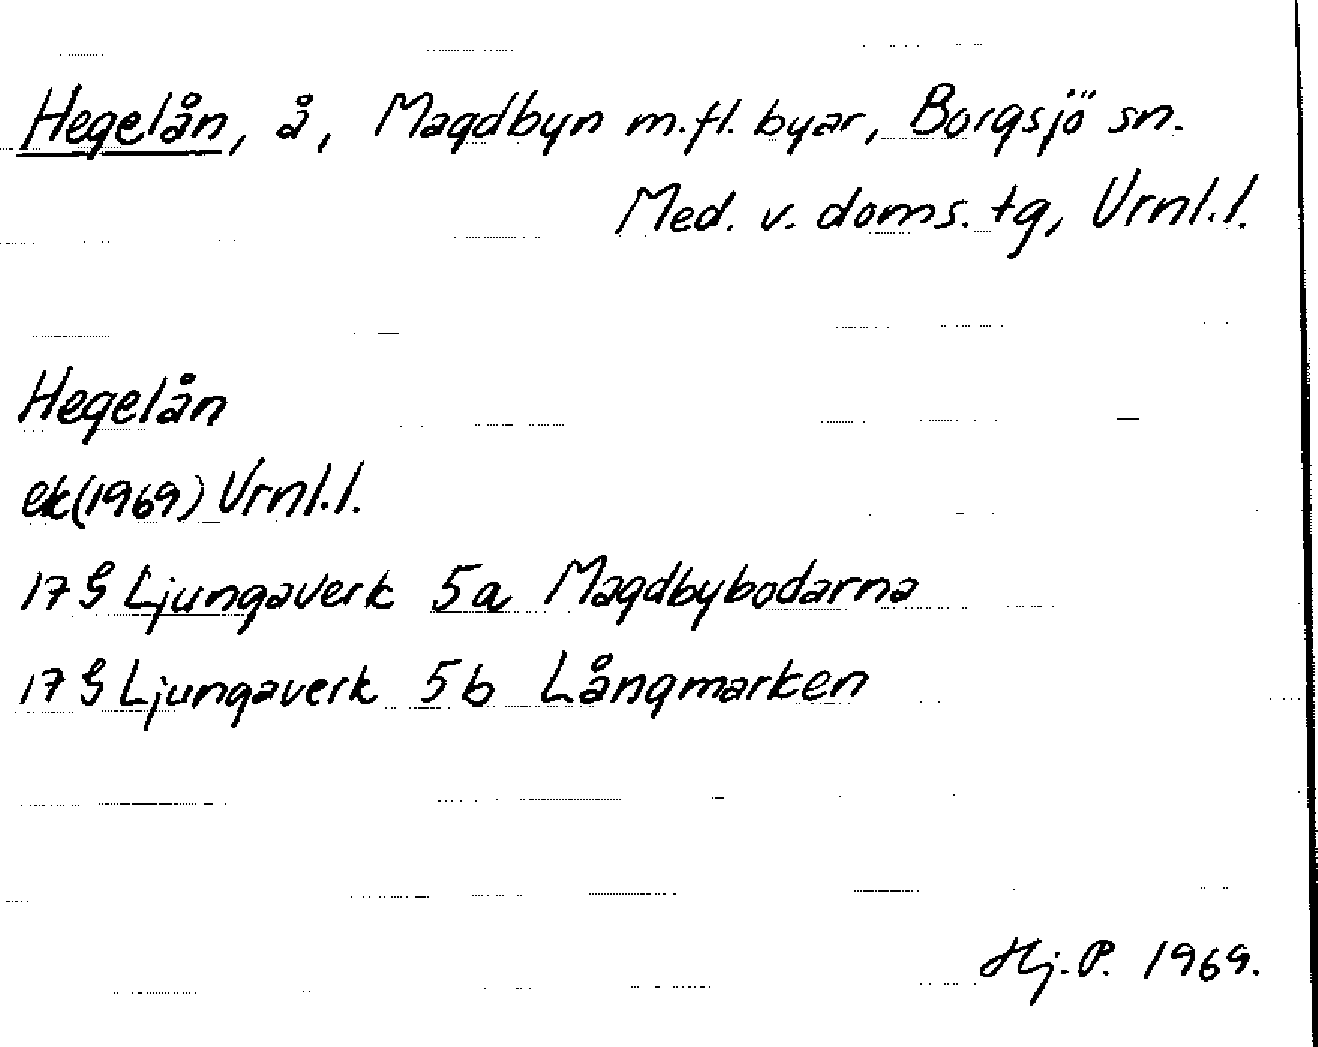 Hegelån, å, Magdbyn m.fl. byar, Borgsjö sn.
Med. v. doms. tg, Vrnl.l.
Hegelån
ek(1969) Vrnl.l.
17 G Ljungaverk 5a Magdbybodarna
17 G Ljungaverk 5b Långmarken
Hj. P. 1969.